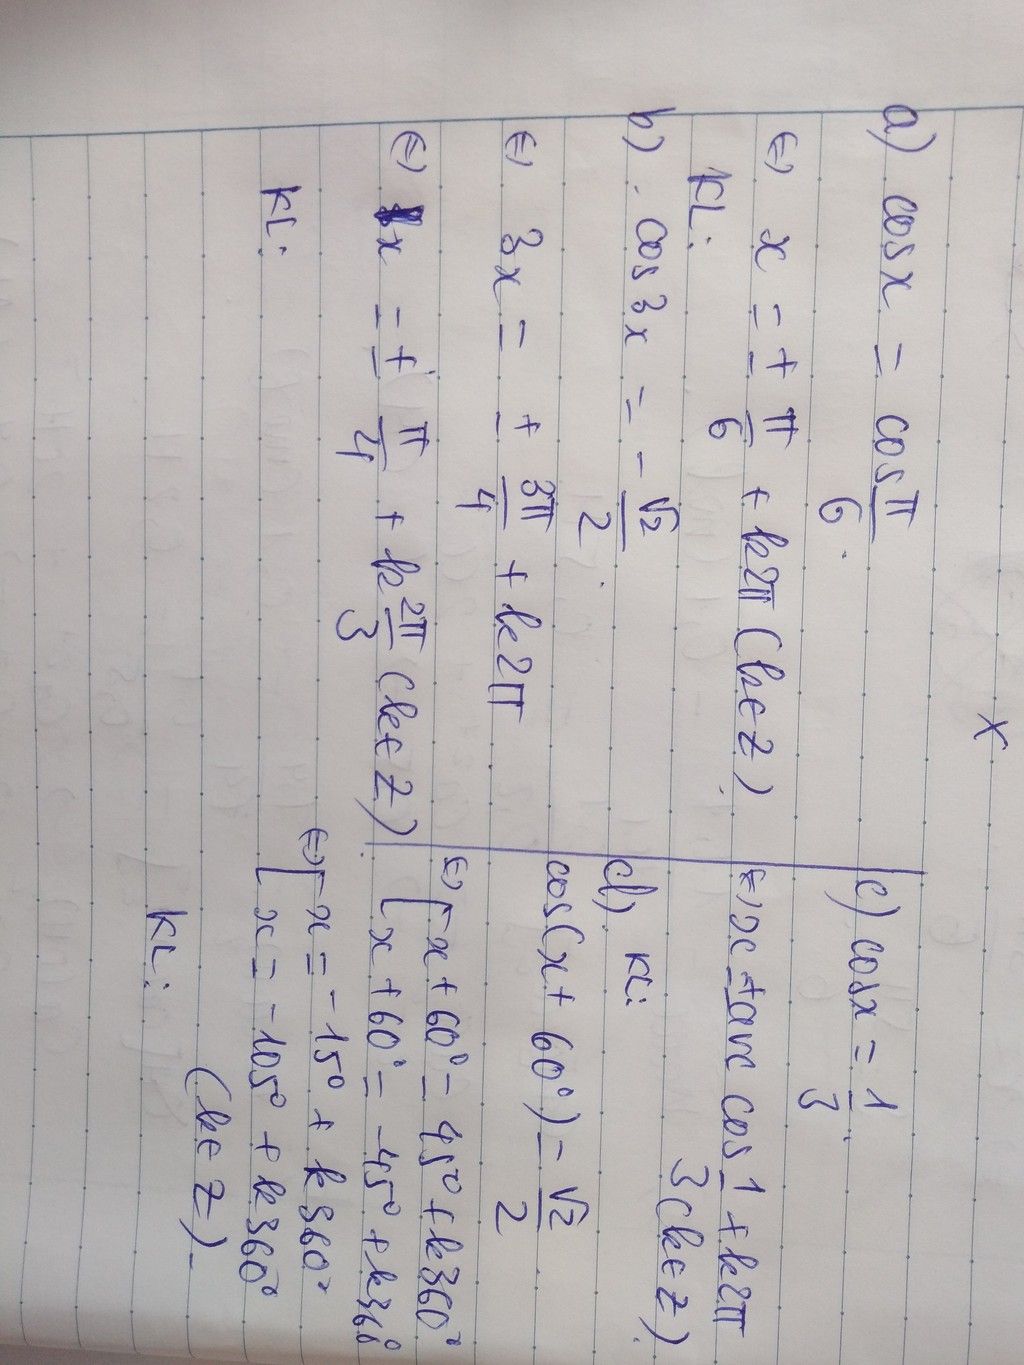 x
a) cosx = cos π/6.
⇔ x = ± π/6 + k2π (k∈Z)
KL:
b). cos3x = - √2/2.
⇔ 3x = ± 3π/4 + k2π
⇔ x = ± π/4 + k 2π/3 (k∈Z)
KL:
c) cosx = 1/3.
⇔ x = ± arc cos 1/3 + k2π (k∈Z).
d) KL:
cos(x + 60°) = √2/2
⇔ [ x + 60° = 45° + k360°
[ x + 60° = -45° + k360
⇔ [ x = -15° + k360°
[ x = -105° + k360°
(k∈Z).
KL: